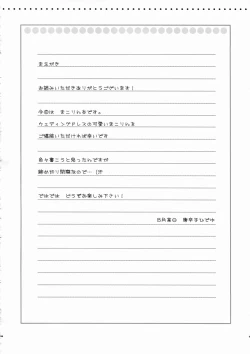 まえがき
お読みいただきありがとうございます!
今回は まこりんるです。
ウェディングドレスの可愛いまこりんを
ご堪能いただければ幸いです
色々書こうと思ったんですが
締め切り間際なので… 汗
ではでは どうぞお楽しみ下さい!